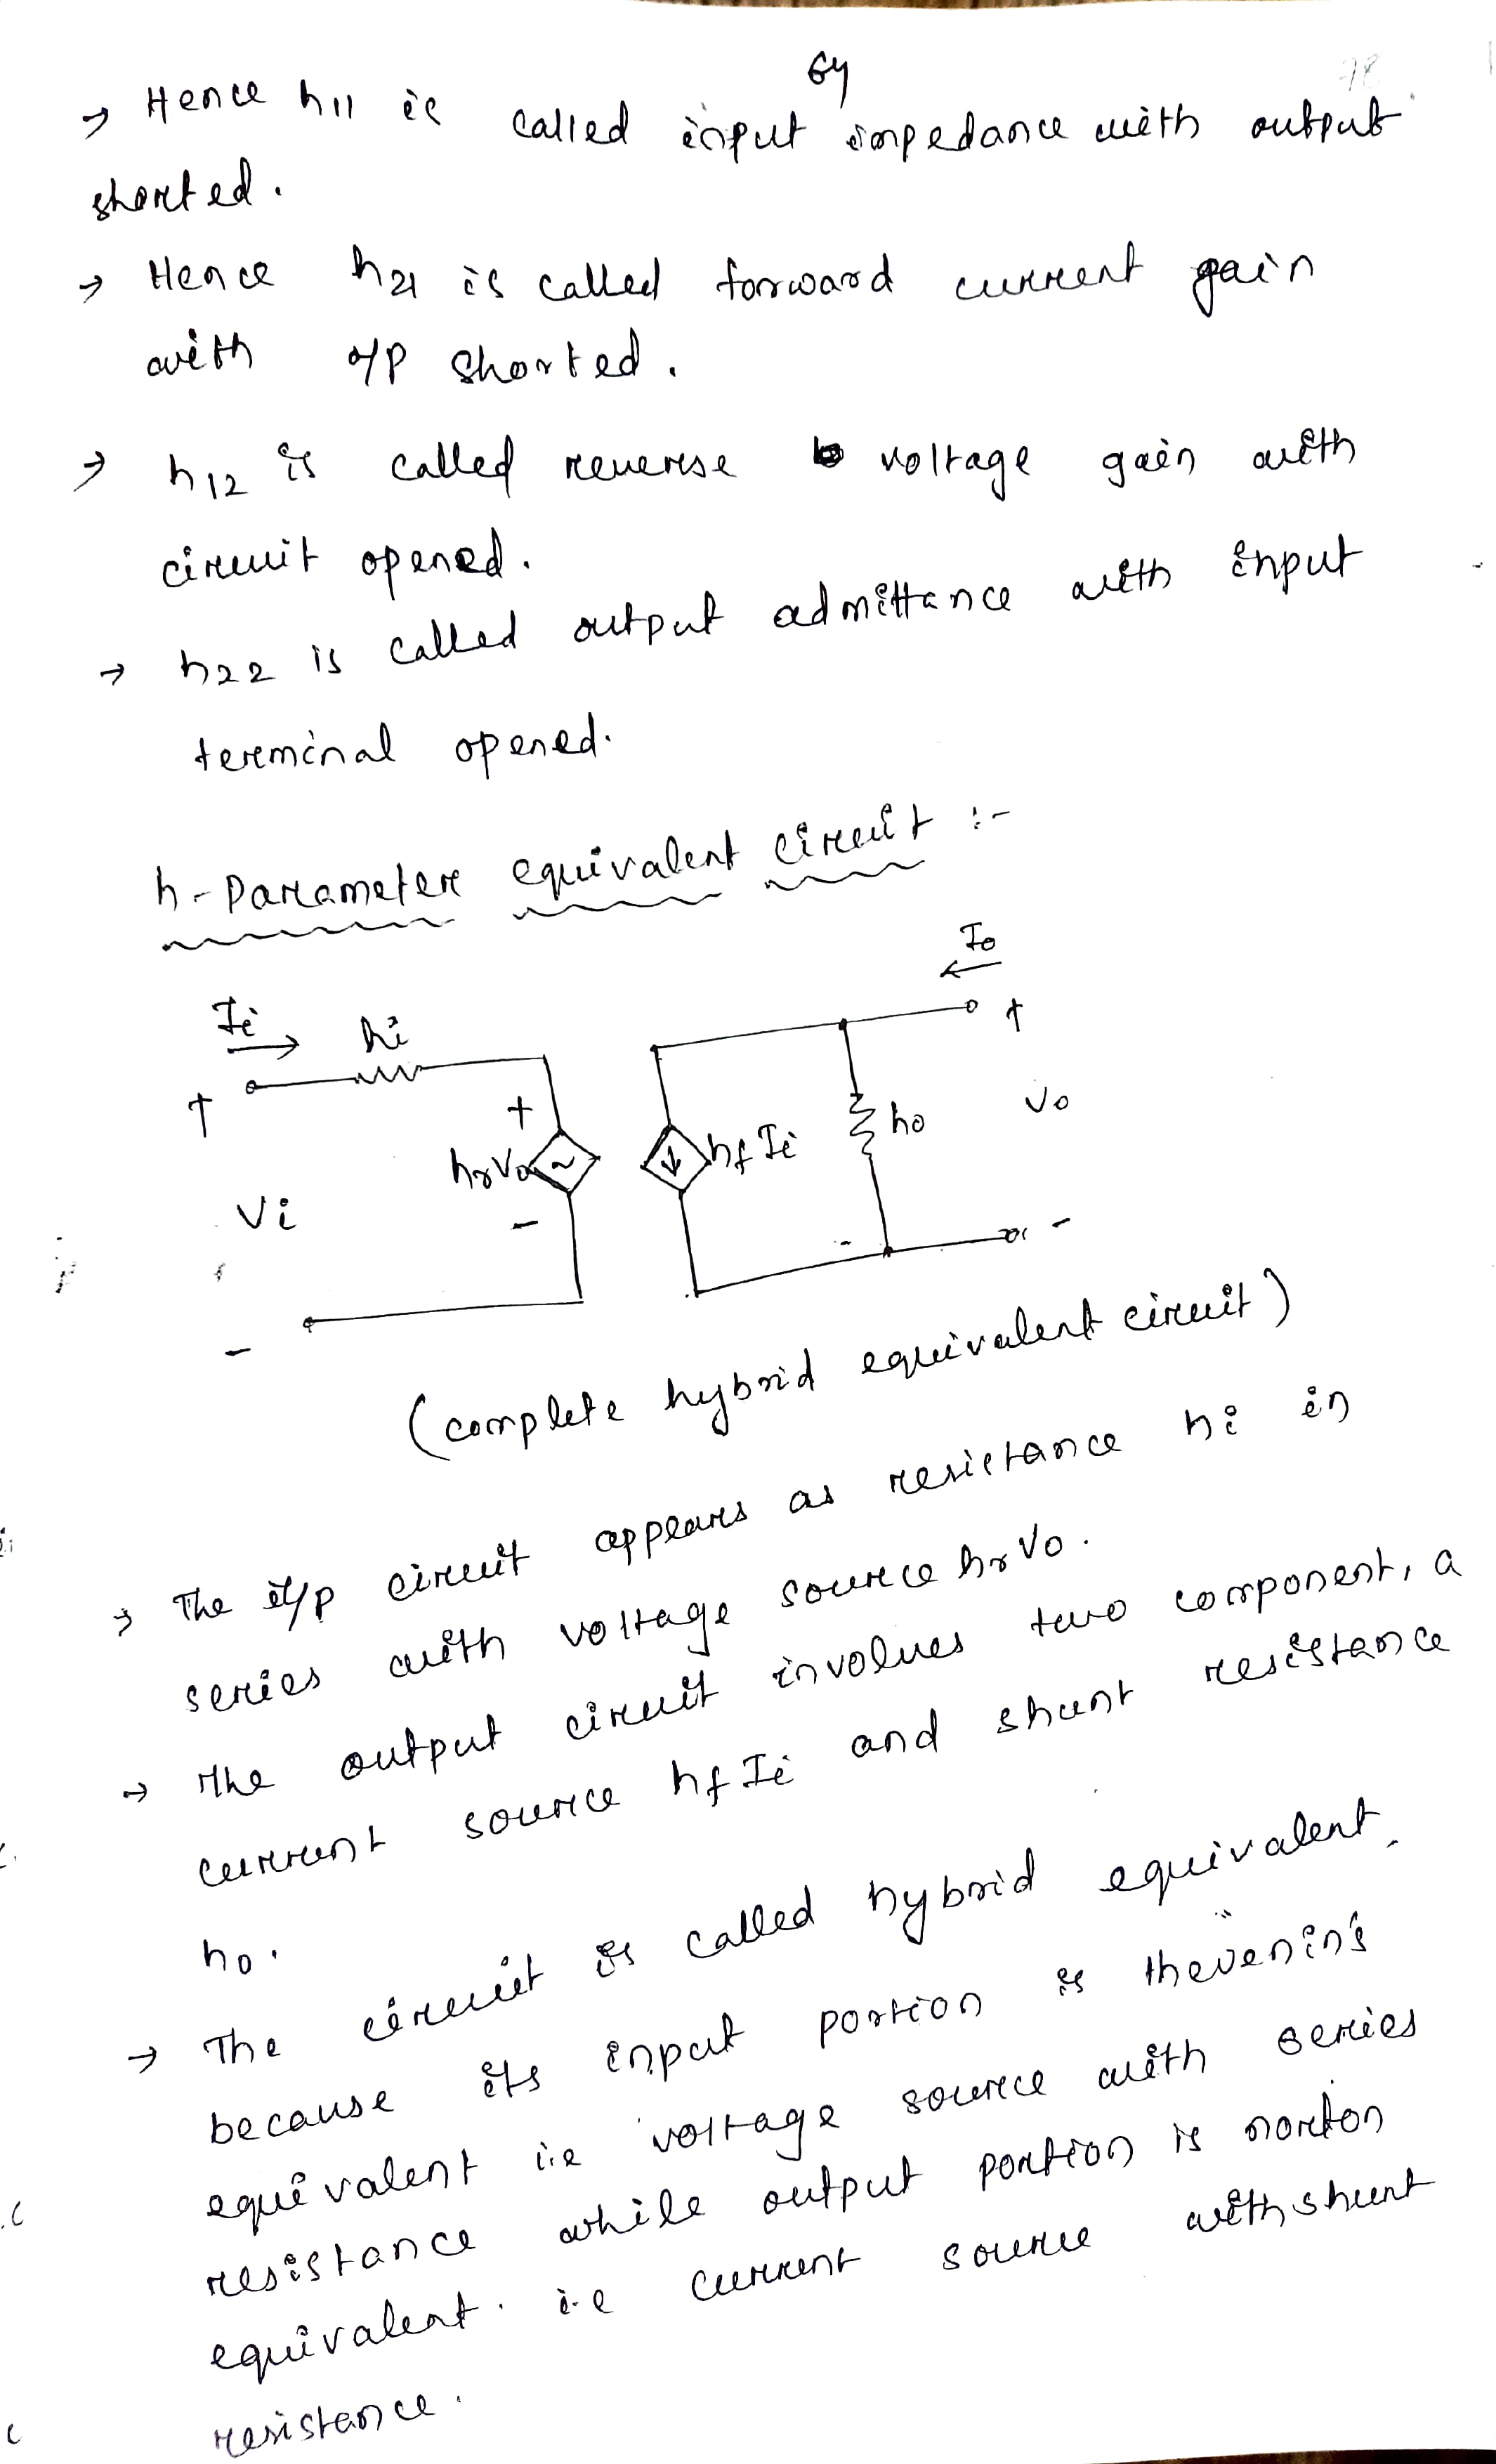 64
78
→ Hence h11 is called input impedance with output
shorted.
→ Hence h21 is called forward current gain
with o/p shorted.
→ h12 is called reverse voltage gain with
circuit opened.
→ h22 is called output admittance with input
terminal opened.
h-Parameter equivalent circuit :-
Io
Ii hi
+ +
+ hrVo hfIi ho Vo
Vi - - -
-
(complete hybrid equivalent circuit)
→ The i/p circuit appears as resistance hi in
series with voltage source hrVo.
→ The output circuit involves two component, a
current source hfIi and shunt resistance
ho.
→ The circuit is called hybrid equivalent.
because its input portion is thevenin's
equivalent i.e voltage source with series
resistance while output portion is norton
equivalent. i.e current source with shunt
resistance.